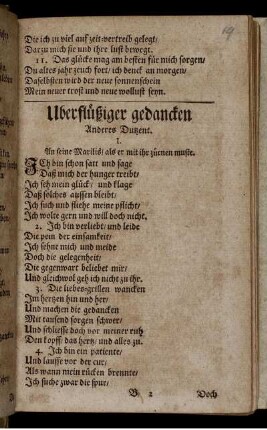 Die ich zu viel auf zeit-vertreib gelegt/
Darzu mich sie und ihre lust bewegt.
11. Das glück mag am besten für mich sorgen/
Du altes jahr zeuch fort/ ich denck an morgen/
Daselbsten wird der neue sonnenschein
Mein neuer trost und neue wollust seyn.
Uberflüßiger gedancken
Anderes Dutzent.
I.
An seine Marilis/ als er mit ihr zürnen muste.
ICh bin schon satt und sage
Daß mich der hunger treibt/
Ich seh mein glück/ und klage
Daß solches aussen bleibt:
Ich such und fliehe meine pflicht/
Ich wolte gern und will doch nicht.
2. Ich bin verliebt/ und leide
Die pein der einsamkeit/
Ich sehne mich und meide
Doch die gelegenheit/
Die gegenwart beliebet mir/
Und gleichwol geh ich nicht zu ihr.
3. Die liebes-grillen wancken
Im hertzen hin und her/
Und machen die gedancken
Mit tausend sorgen schwer/
Und schliesse doch vor meiner ruh
Den kopff/ das hertz/ und alles zu.
4. Ich bin ein patiente/
Und lauffe vor der cur/
Als wann mein rücken brennte/
Ich suche zwar die spur/
B 2 Doch